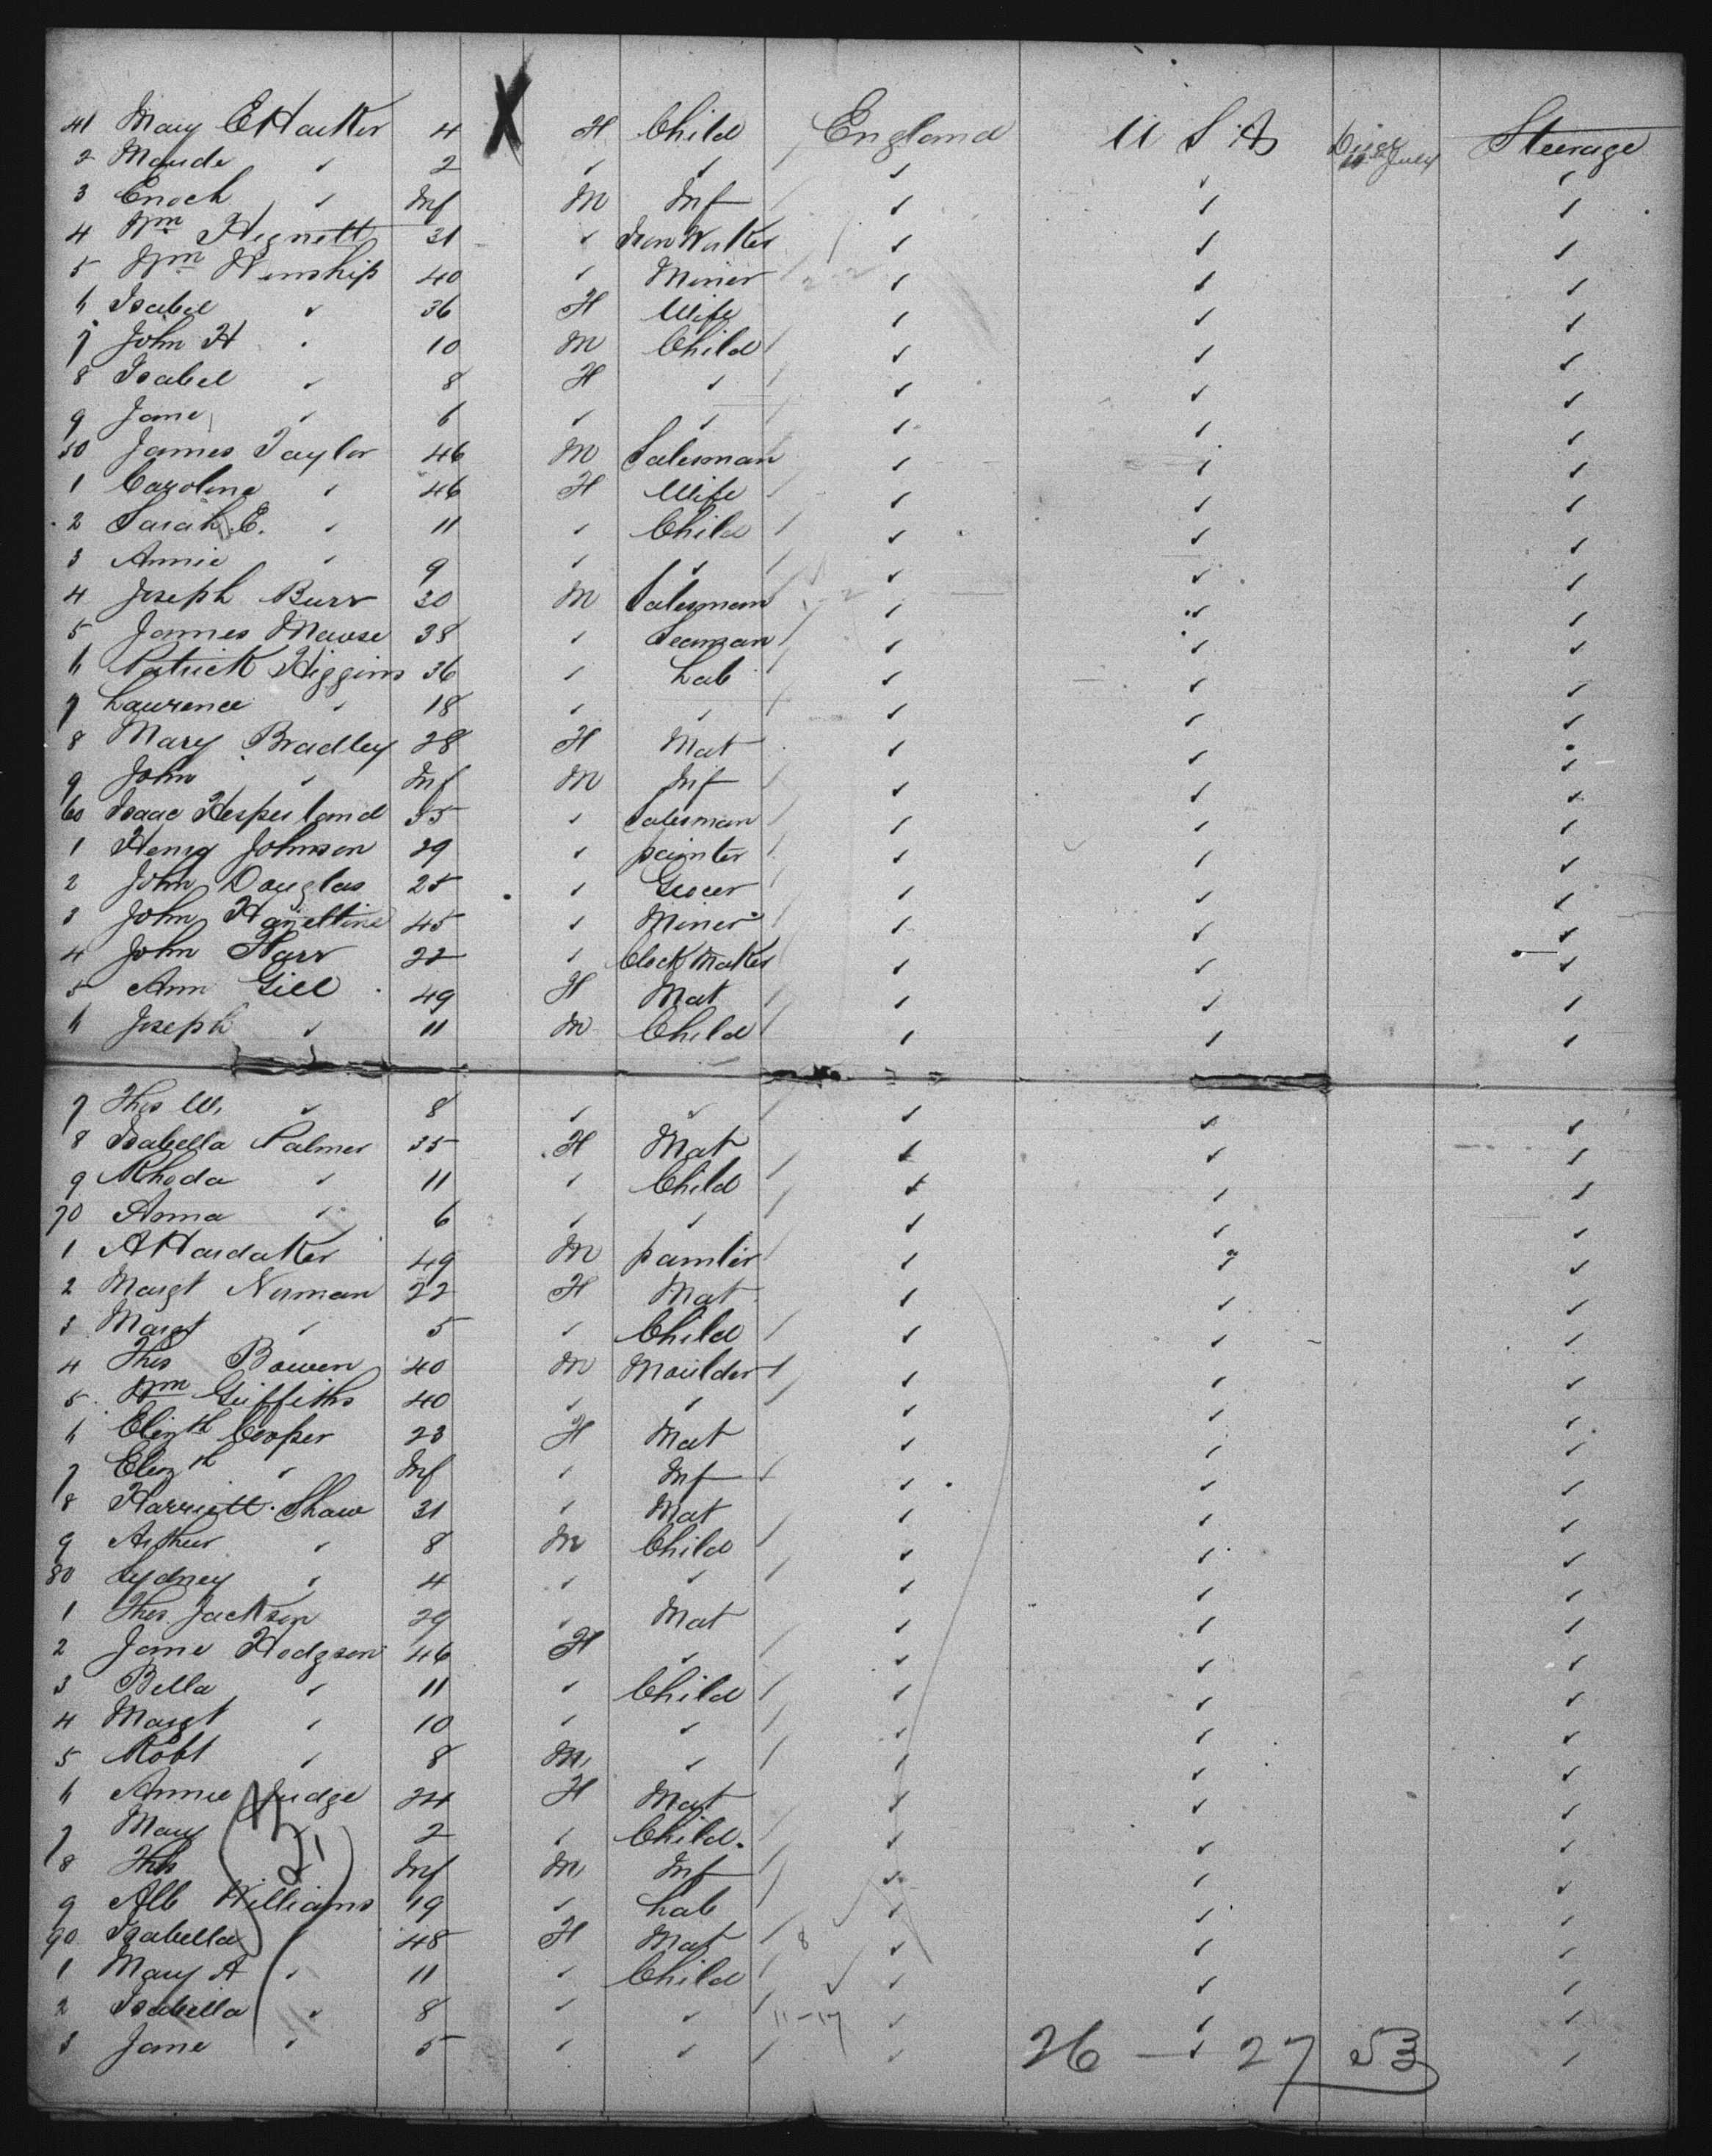 41 Mary E Harker 4 X F Child England U S A Died July Steerage
2 Maude " 2 " " " " "
3 Enoch " Inf M Inf " " "
4 Wm Hignett 31 " Iron Worker " " "
5 Wm Winship 40 " Miner " " "
6 Isabel " 36 F Wife " " "
7 John H " 10 M Child " " "
8 Isabel " 8 F " " " "
9 Jane " 6 " " " " "
50 James Taylor 46 M Salesman " " "
1 Caroline " 46 F Wife " " "
2 Sarah E. " 11 " Child " " "
3 Annie " 9 " " " " "
4 Joseph Burr 30 M Salesman " " "
5 James Mawse 38 " Seaman " " "
6 Patrick Higgins 36 " Lab " " "
7 Lawrence " 18 " " " " "
8 Mary Bradley 28 F Mat " " "
9 John " Inf M Inf " " "
60 Isaac 35 " Salesman " " "
1 Henry Johnson 29 " painter " " "
2 John Douglas 25 " Grocer " " "
3 John Hazeltine 45 " Miner " " "
4 John Harr 22 " Clock Maker " " "
5 Ann Gill 49 F Mat " " "
6 Joseph " 11 M Child " " "
7 Thos W. " 8 " " " " "
8 Isabella Palmer 35 F Mat " " "
9 Rhoda " 11 " Child " " "
70 Anna " 6 " " " " "
1 A Hardaker 49 M painter " " "
2 Margt Norman 22 F Mat " " "
3 Margt " 5 " Child " " "
4 Thos Bowen 40 M Moulder " " "
5 Wm Griffiths 40 " " " " "
6 Elizth Cooper 23 F Mat " " "
7 Elizth " Inf " Inf " " "
8 Harriett Shaw 31 " Mat " " "
9 Arthur " 8 M Child " " "
80 Sydney " 4 " " " " "
1 Thos Jackson 29 " Mat " " "
2 Jane Hodgson 46 F " " " "
3 Bella " 11 " Child " " "
4 Margt " 10 " " " " "
5 Robt " 8 M " " " "
6 Annie Judge 24 F Mat " " "
7 Mary " 2 " Child " " "
8 Thos " Inf M Inf " " "
9 Alb Williams 19 " Lab " " "
90 Isabella " 48 F Mat 8 " " "
1 Mary A " 11 " Child " " "
2 Isabella " 8 " " 11-17 " " "
3 Jane " 5 " " " " "
26 — 27 53